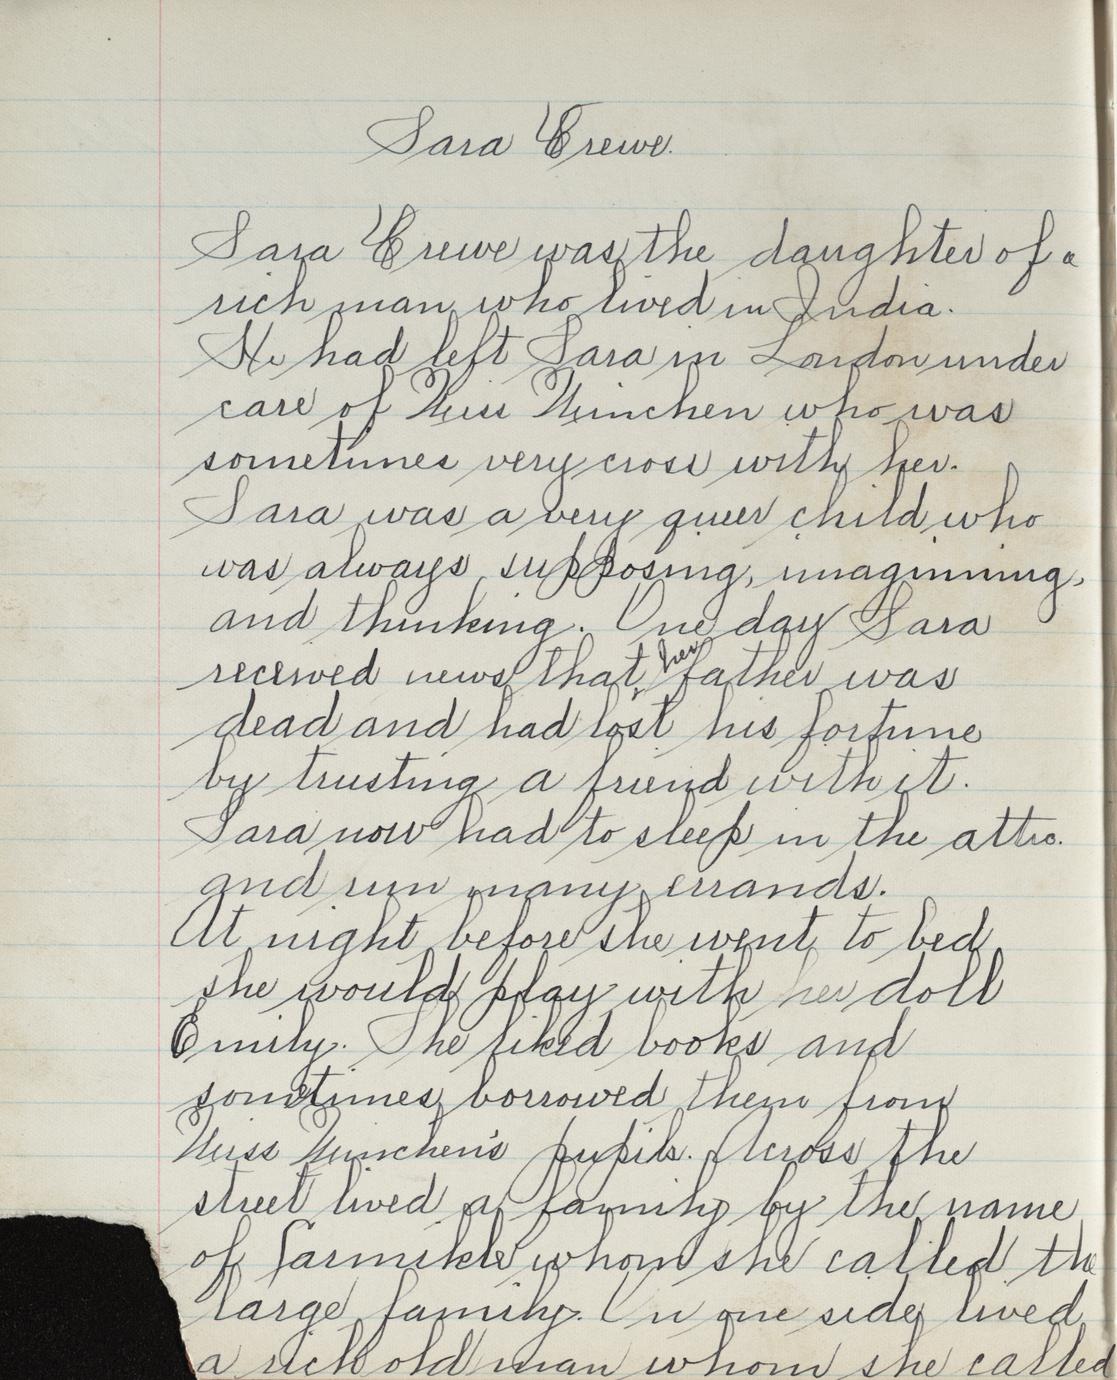 Sara Crewe.
Sara Crewe was the daughter of a
rich man who lived in India.
He had left Sara in London under
care of Miss Minchen who was
sometimes very cross with her.
Sara was a very queer child who
was always supposing, imaginning,
and thinking. One day Sara
received news that her father was
dead and had lost his fortune
by trusting a friend with it.
Sara now had to sleep in the attic.
and run many errands.
At night before she went to bed
she would play with her doll
Emily. She liked books and
sometimes borrowed them from
Miss Minchen's pupils. Across the
street lived a family by the name
of Carmikle whom she called the
large family. On one side lived
a rich old man whom she called